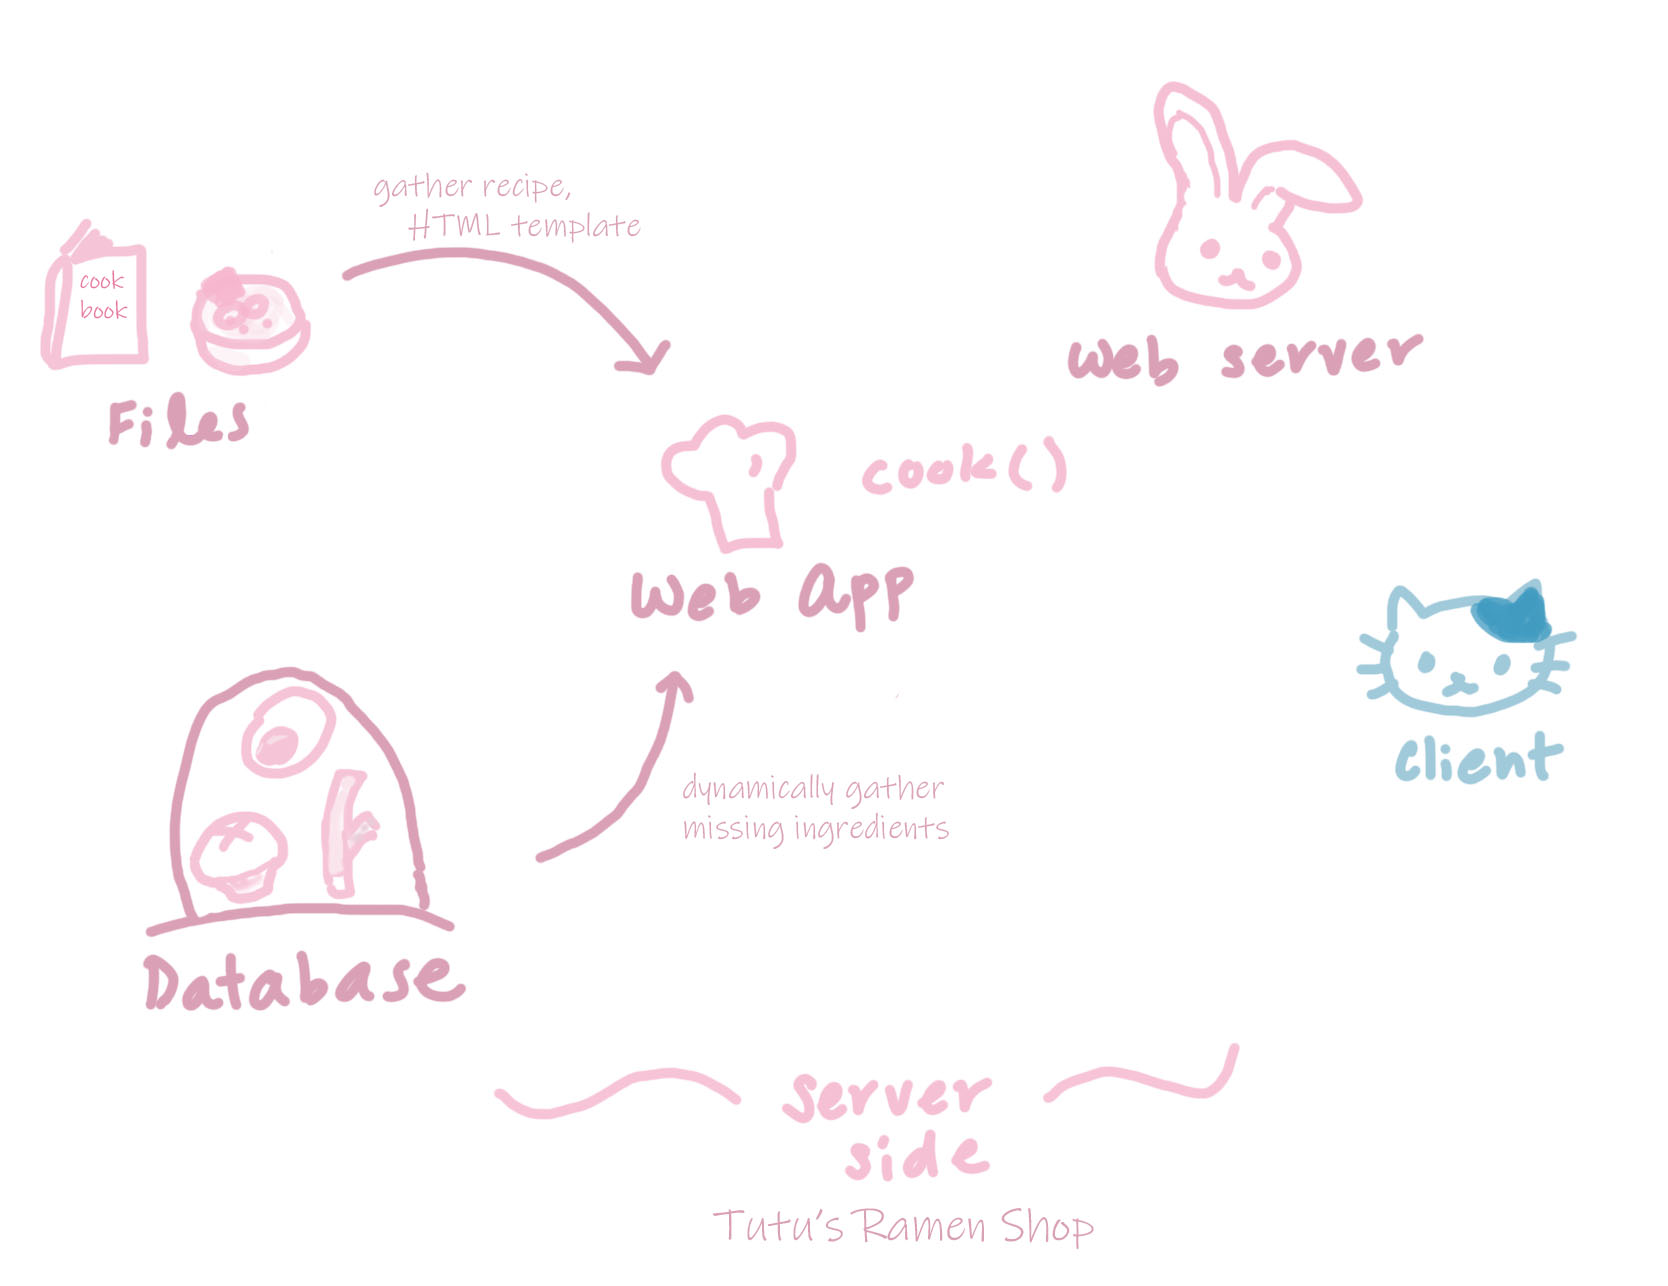 gather recipe,
HTML template
cook
book
Files
web server
cook()
Web App
client
dynamically gather
missing ingredients
Database
server
side
Tutu's Ramen Shop